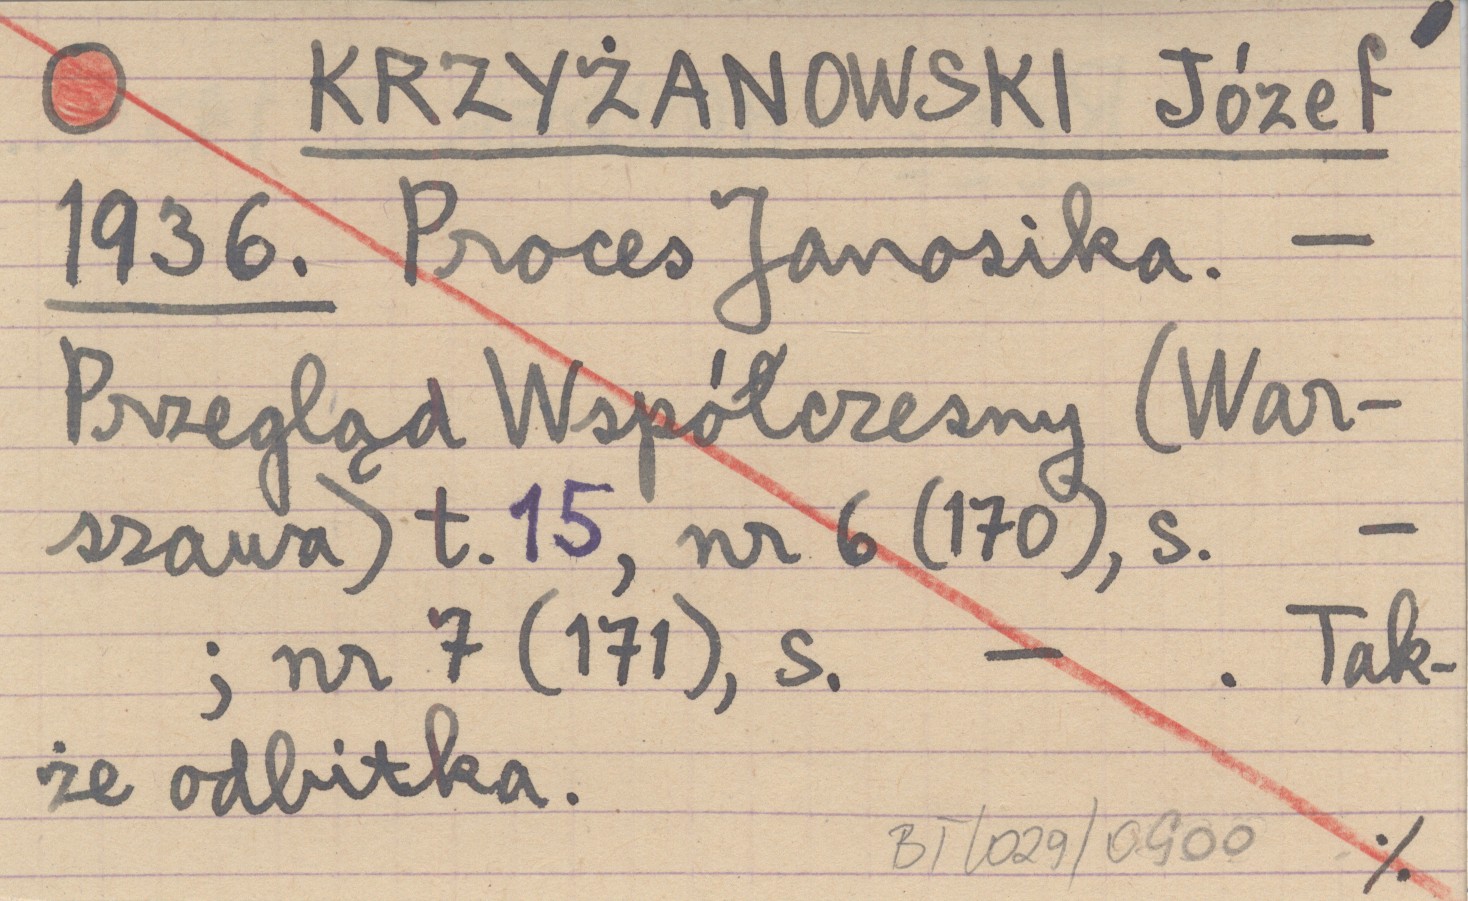 KRZYŻANOWSKI Józef
1936. Proces Janosika. —
Przegląd Współczesny (War-
szawa) t. 15, nr 6 (170), s. —
; nr 7 (171), s. — . Tak-
że odbitka.
BT/029/0900
./.